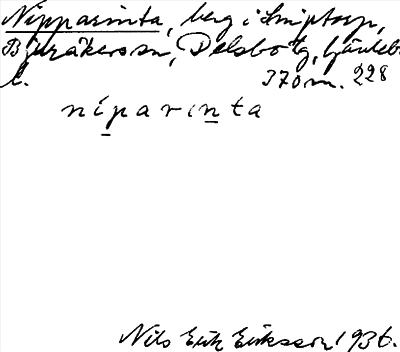 Nipparinta, berg i Sniptorp,
Bjuråkers sn, Delsbo tg, Gävleb.
l. 370 m. 228
niparinta
Nils Erik Eriksson 1936.